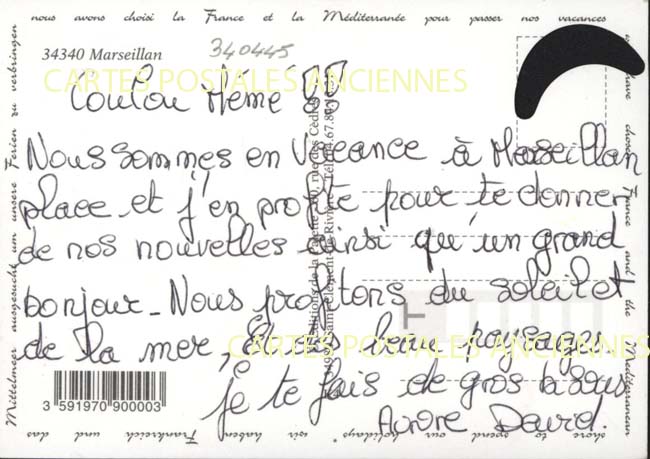 nous avons choisi la France et la Méditerranée pour passer nos vacances
34340 Marseillan
340445
CARTES POSTALES ANCIENNES
Coucou Mémé
Nous sommes en Vacance à Marseillan
place et j'en profite pour te donner
de nos nouvelles ainsi qu'un grand
bonjour - Nous profitons du soleil et
de la mer, Et des beau paysages.
CARTES POSTALES ANCIENNES
je te fais de gros bisous
Aurore David.
3 591970 900003
Mittelmeer ausgesucht um unsere Ferien zu verbringen
have chosen France and the Mediterranean
shore to spend our holidays
wir haben Frankreich und das